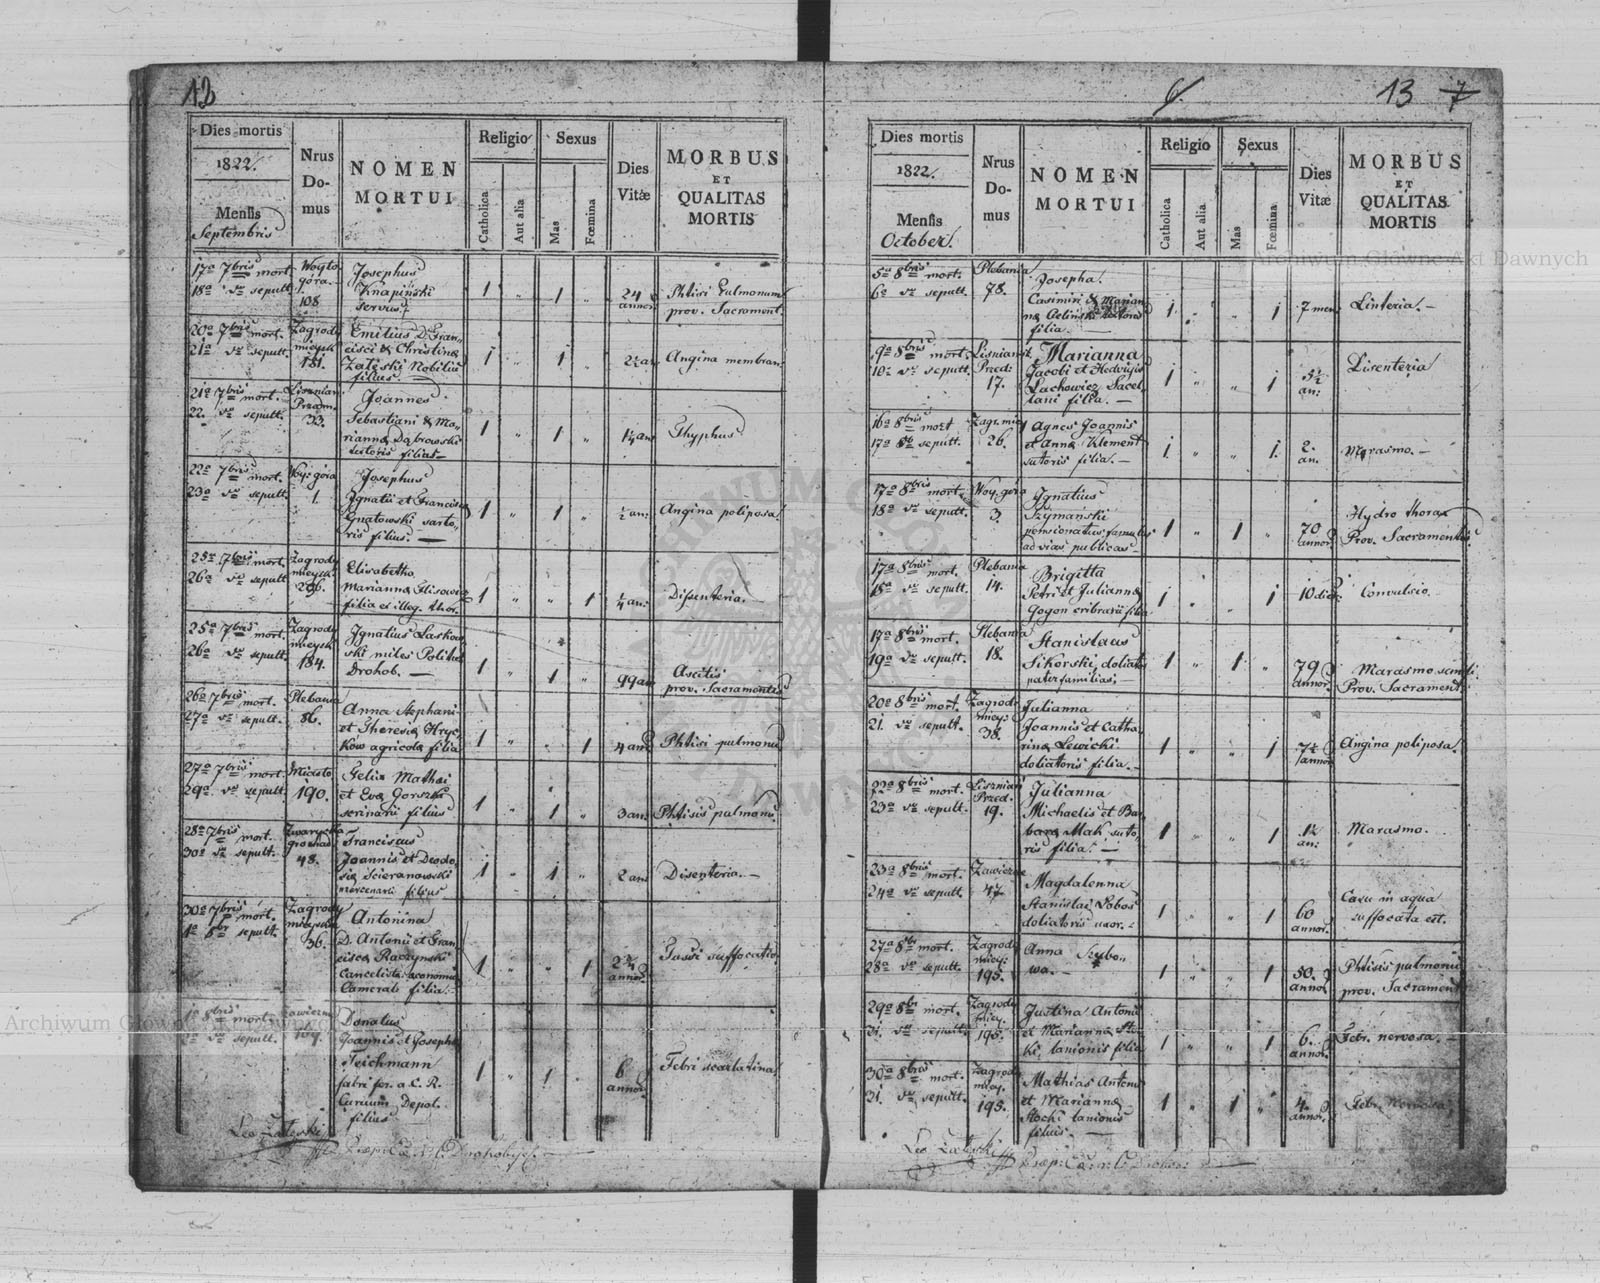 12
Dies mortis
1822.
Mensis
Septembris
Nrus
Do-
mus
NOMEN
MORTUI
Religio
Catholica
Aut alia
Sexus
Mas
Fœmina
Dies
Vitæ
MORBUS
ET
QUALITAS
MORTIS
17a 7bris mort.
18a sepult.
Woyto
góra.
108
Josephus
Knapiński
servus
1 " 1 "
24
annor
Phtisi Pulmonum
prov. Sacrament.
20a 7bris mort.
21a sepult.
Zagrody
mieysk
181.
Emilius D. Fran-
cisci & Christinæ
Zaleski Nobilius
filius.
1 " 1 "
Angina membran
21a 7bris mort.
22. sepult.
Lisznian
Przedm.
33.
Joannes
Sebastiani & Ma-
riannæ Dąbrowski
filius
1 " 1 "
1¼ an
Thyphus
22a 7bris mort.
23a sepult.
Woy: góra
1.
Josephus
Ignatii et Francisca
Gnatowski sarto-
ris filius.
1 " 1 "
½ an:
Angina poliposa.
25a 7bris mort.
26a sepult
Zagrody
mieysk
Elisabetha
Mariannæ Glisowicz
filia ex illeg. thor.
1 " " 1
¼ an:
Disenteria.
25a 7bris mort.
26a sepult.
Zagrody
mieysk
184.
Ignatius Laskow-
ski miles Politiæ
Drohob.
1 " 1 "
99 an
Ascitis
prov. Sacramentis
26a 7bris mort.
27a sepult.
Plebania
86.
Anna Stephani
et Theresiæ Hryc-
ków agricolæ filia
1 " " 1
4 an
Phtisi pulmonu
27a 7bris mort.
29a sepult.
Miasto
190.
Felix Mathæi
et Eva Gorszki
filius
1 " 1 "
3 an
Phtisis pulmonu
28a 7bris mort.
30a sepult.
Zwarycka
gromad
48.
Franciscus
Joannis et Deodo-
siæ Scieranowski
mercenarii filius
1 " 1 "
2 an
Disenteria.
30a 7bris mort.
1a 8br sepult.
Zagrody
mieysk
36.
Antonina
D. Antonii et Fran-
cisca Raczynski
Cancelista
Camerali filia.
1 " " 1
annor
Tussi suffocativ
8bris mort.
sepult.
Zawiezna
Donatus
Joannis et Josepha
Teichmann
fabri fer. a C. R.
Depot.
filius
1 " 1 "
6
annor
Febri scarlatina
Leo Zaleski
Drohobyc.
13 7
Dies mortis
1822.
Mensis
October.
Nrus
Do-
mus
NOMEN
MORTUI
Religio
Catholica
Aut alia
Sexus
Mas
Fœmina
Dies
Vitæ
MORBUS
ET
QUALITAS
MORTIS
5a 8bris mort.
6a sepult.
Plebania
78.
Josepha.
Casimiri & Marian-
næ
filia.
1 " " 1
7 men
Linteria.
9a 8bris mort.
10a sepult.
Lisnian:
Przed:
17.
Marianna
Jacobi et Hedvigis
Lachowicz Sacel-
lani filia.
1 " " 1
5½
an:
Disenteria
16a 8bris mort
17a 8b sepult.
Zagr. miey
26.
Agnes Joannis
et Annæ Klement
sutoris filia.
1 " " 1
2.
an.
Marasmo.
17a 8bris mort.
18a sepult.
Woy. góra
3.
Ignatius
Szymański
pensionatus famulus
ad vias publicas
1 " 1 "
70
annor
Hydro thorax
Prov. Sacramentis.
17a 8bris mort.
18a sepult.
Plebania
14.
Brigitta
Petri et Juliannæ
Gogon cribrarii filia
1 " " 1
10 die
Convulsio.
17a 8bris mort.
19a sepult.
Plebania
18.
Stanislaus
Sikorski doliator
paterfamilias.
1 " 1 "
79
annor
Marasmo senili
Prov. Sacrament.
20a 8bris mort.
21. sepult.
Zagrody
miey:
38.
Julianna
Joannis et Catha-
rinæ Lewicki
doliatoris filia.
1 " " 1
7½
annor
Angina poliposa.
22a 8bris mort.
23a sepult.
Liszniań
Przed.
19.
Julianna
Michaelis et Bar-
baræ Mak suto-
ris filia.
1 " " 1
an:
Marasmo.
23a 8bris mort.
24a sepult
Zawiezne
47
Magdalenna
Stanislai Bobos
doliatoris uxor.
1 " " 1
60
annor.
Casu in aqua
suffocata est.
27a 8br mort.
28a sepult.
Zagrody
miey:
195.
Anna Szubo-
wa.
1 " " 1
50.
annor
Phtisis pulmonu
prov. Sacrament
29a 8br mort.
31. sepult.
Zagrody
miey.
195.
Justina Antonii
et Mariannæ Sto-
ki lanionis filia
1 " " 1
6.
annor.
Febr. nervosa.
30a 8bris mort.
31. sepult.
Zagrody
miey.
195.
Mathias Antonii
et Mariannæ
Stocki lanionis
filius.
1 " 1 "
4.
annor.
Febr. Nervosa
Leo Zaleski
Archiwum Główne Akt Dawnych
Archiwum Główne Akt Dawnych